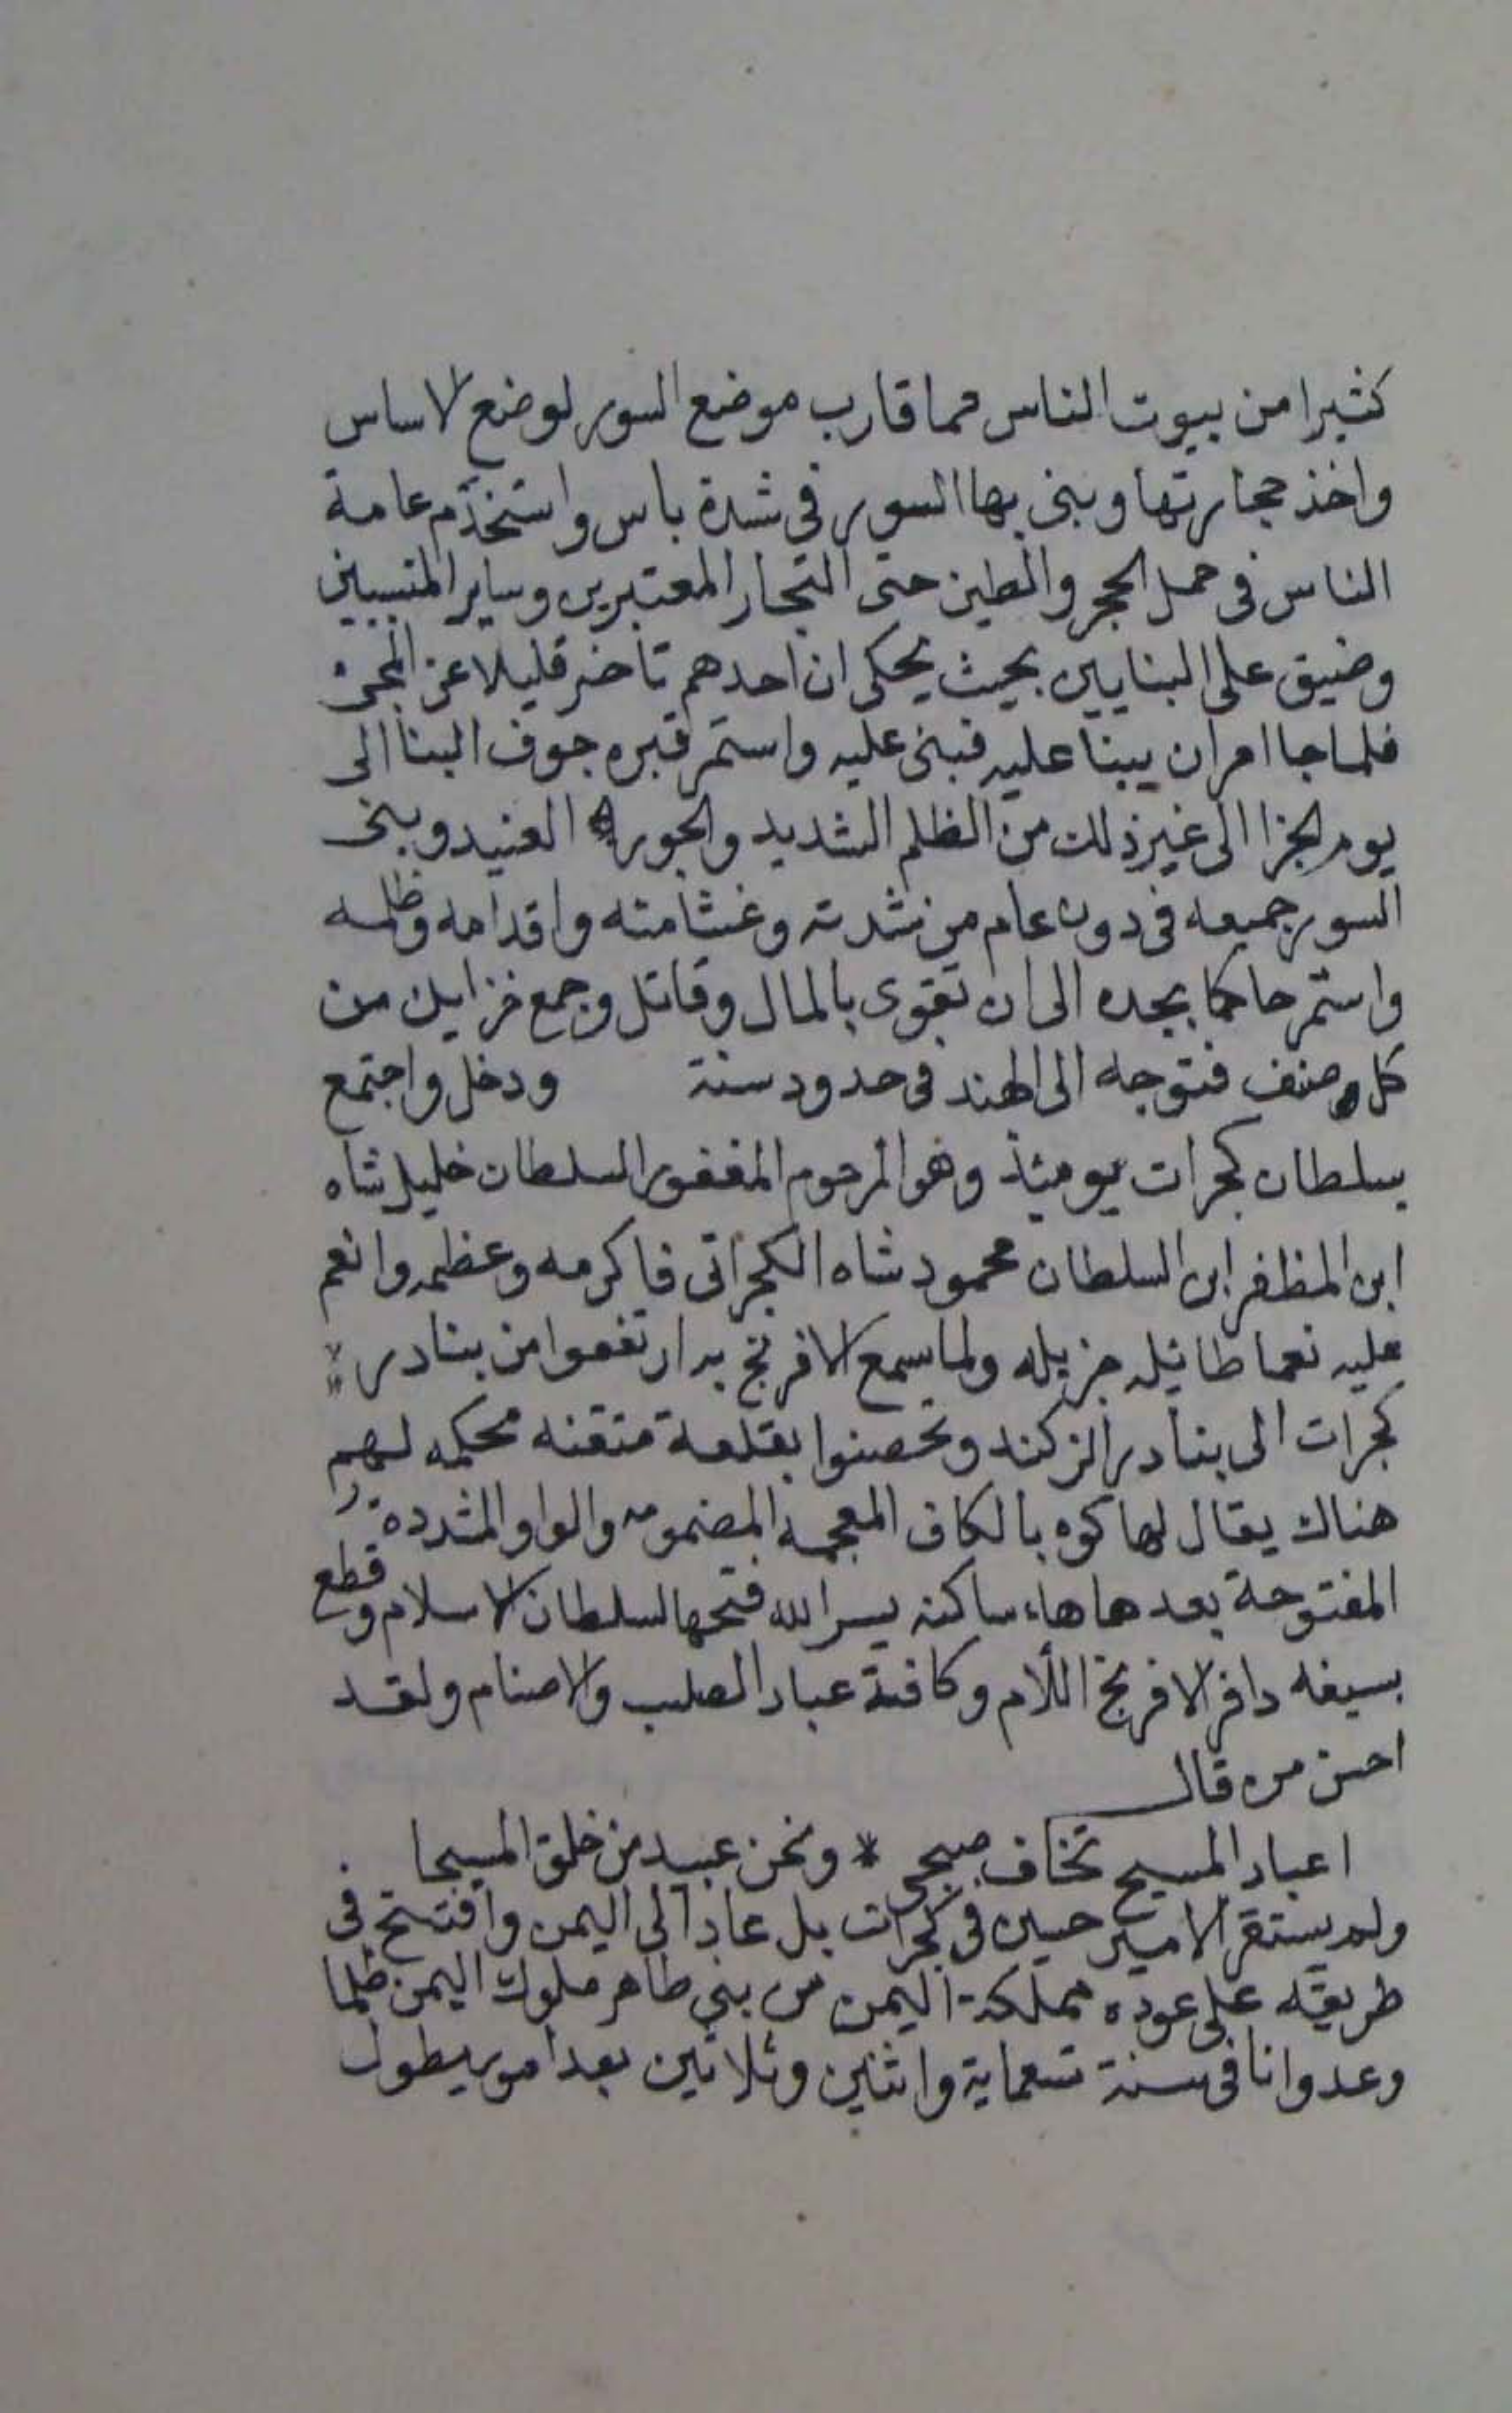 كثيرا من بيوت الناس مما قارب موضع السور لوضع الاساس
واخذ حجارتها وبنى بها السور فى شدة باس واستخدم عامة
الناس فى حمل الحجر والطين حتى التجار المعتبرين وساير المتسببين
وضيق على البنايين بحيث يحكى ان احدهم تاخر قليلا عن المجئ
فلما جا امر ان يبنا عليه فبنى عليه واستمر قبره جوف البنا الى
يوم الجزا الى غير ذلك من الظلم الشديد والجور العنيد وبنى
السور جميعه فى دون عام من شدته وغشامته واقدامه وظلمه
واستمر حاكما بجده الى ان تقوى بالمال وقاتل وجمع خزاين من
كل صنف فتوجه الى الهند فى حدود سنة ودخل واجتمع
بسلطان كجرات يوميئذ وهو المرحوم المغفور السلطان خليل شاه
ابن المظفر ابن السلطان محمود شاه الكجراتى فاكرمه وعظمه وانعم
عليه نعما طائيله جزيله ولما سمع الافرنج به ارتفعوا من بنادر
كجرات الى بنادر الزكند وتحصنوا بقلعة متقنه محكمه لهم
هناك يقال لها كوه بالكاف المعجمة المضمومه والواو المشدده
المفتوحة بعدها هاء ساكنه يسر الله فتحها لسلطان الاسلام وقطع
بسيفه دافر الافرنج اللأم وكافة عباد الصلب والاصنام ولقد
احسن من قال
اعباد المسيح تخاف صبحى * ونحن عبيد من خلق المسيحا
ولم يستقر الامير حسين فى كجرات بل عاد الى اليمن وافتتح فى
طريقه على عوده مملكة اليمن من بنى طاهر ملوك اليمن ظلما
وعدوانا فى سنة تسعماية واثنين وثلاثين بعد امور يطول